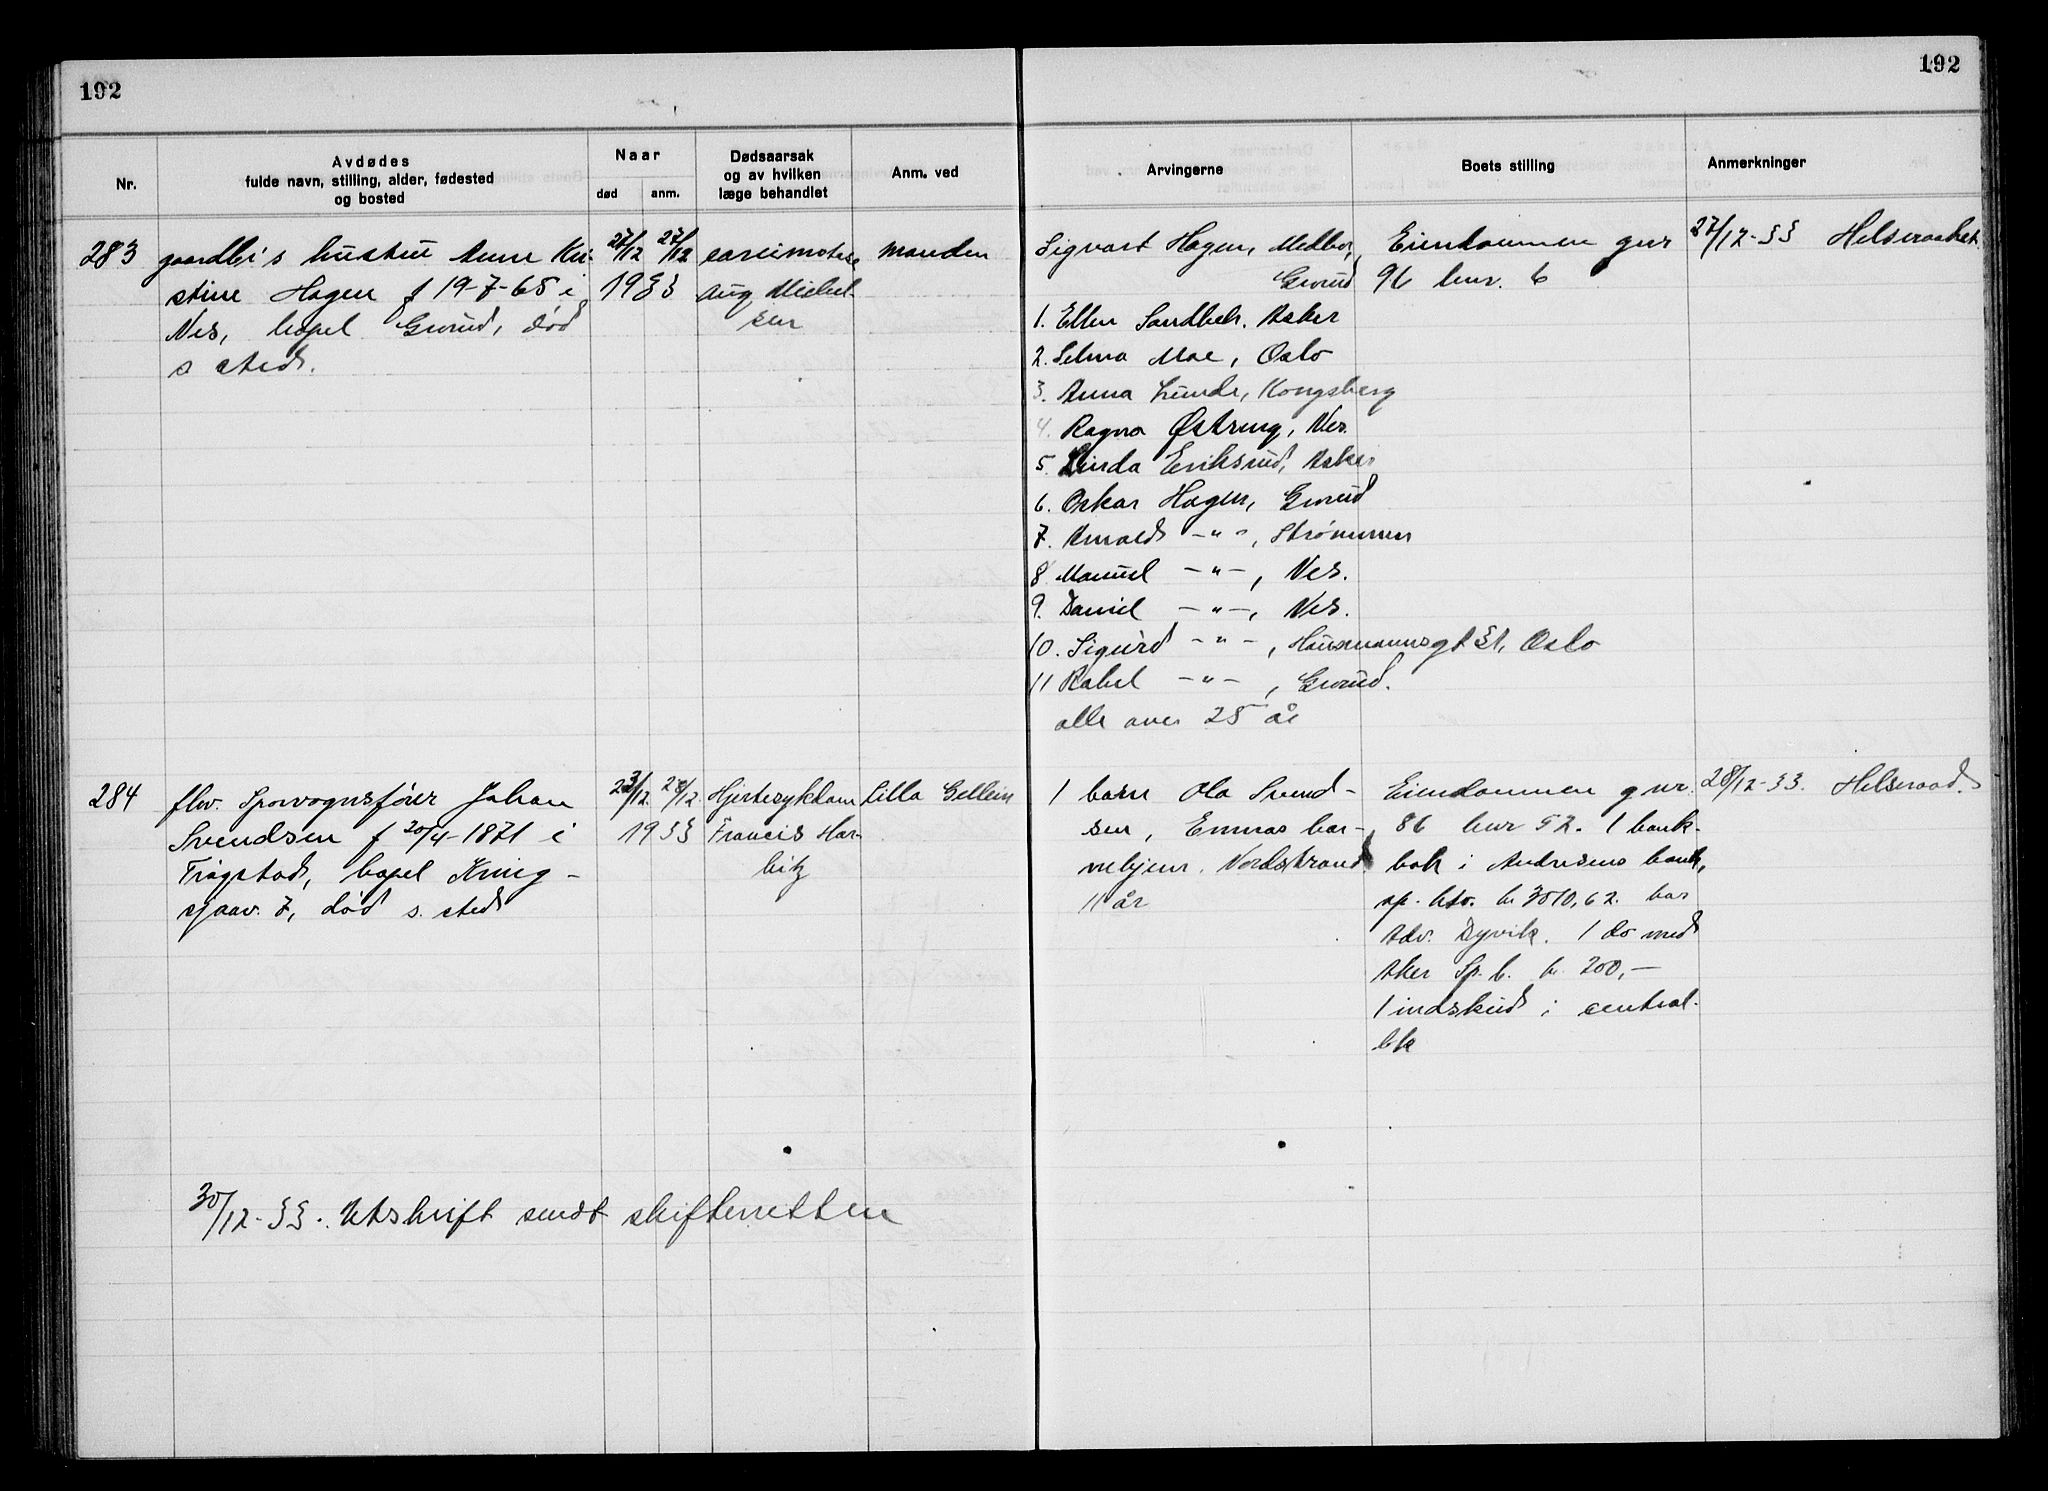 192
192
Nr.
Avdødes
fulde navn, stilling, alder, fødested
og bosted
Naar
død
anm.
Dødsaarsak
og av hvilken
læge behandlet
Anm. ved
Arvingerne
Boets stilling
Anmerkninger
283
gaardbr's hustru Anne Kri-
stine Hagen f 19-7-65 i
Nes, bopel Grorud, død
s sted.
27/12 27/12
1933
Aug. Michel-
sen
manden
Sigvart Hagen, Medbor,
Grorud
1. Ellen Sandbek. Asker
2. Selma Moe, Oslo
3. Anna Lunde, Kongsberg
4. Ragna Østreng, Nes.
5. Linda Eriksrud, Asker
6. Oskar Hagen, Grorud
7. Arnold -"-, Strømmen
8. Manuel -"-, Nes.
9. Daniel -"-, Nes.
10. Sigurd -"-, Hausmannsgt 31, Oslo
11 Rakel -"-, Grorud.
alle over 25 år
Eiendommen gnr
96 bnr. 6
27/12-33 Helseraadet
284
fhv. Sporvognsfører Johan
Svendsen f 20/4-1871 i
Trøgstad, bopel Kring-
sjaav. 7, død s. sted
23/12 28/12
1933
Hjertesykdom
Francis Har-
bitz
Lilla Gellein
1 barn Ola Svend-
sen, Emmas bar-
nehjem, Nordstrand
11 år
Eiendommen gnr.
86 bnr 52. 1 bank-
bok i Andresens bank,
sp. ktr. kr 3010,62. har
Adv. Dyvik. 1 do med
Aker Sp.b. kr. 200,-
1 indskud i central-
bk
28/12-33. Helseraad.
30/12-33. Utskrift sendt skifteretten